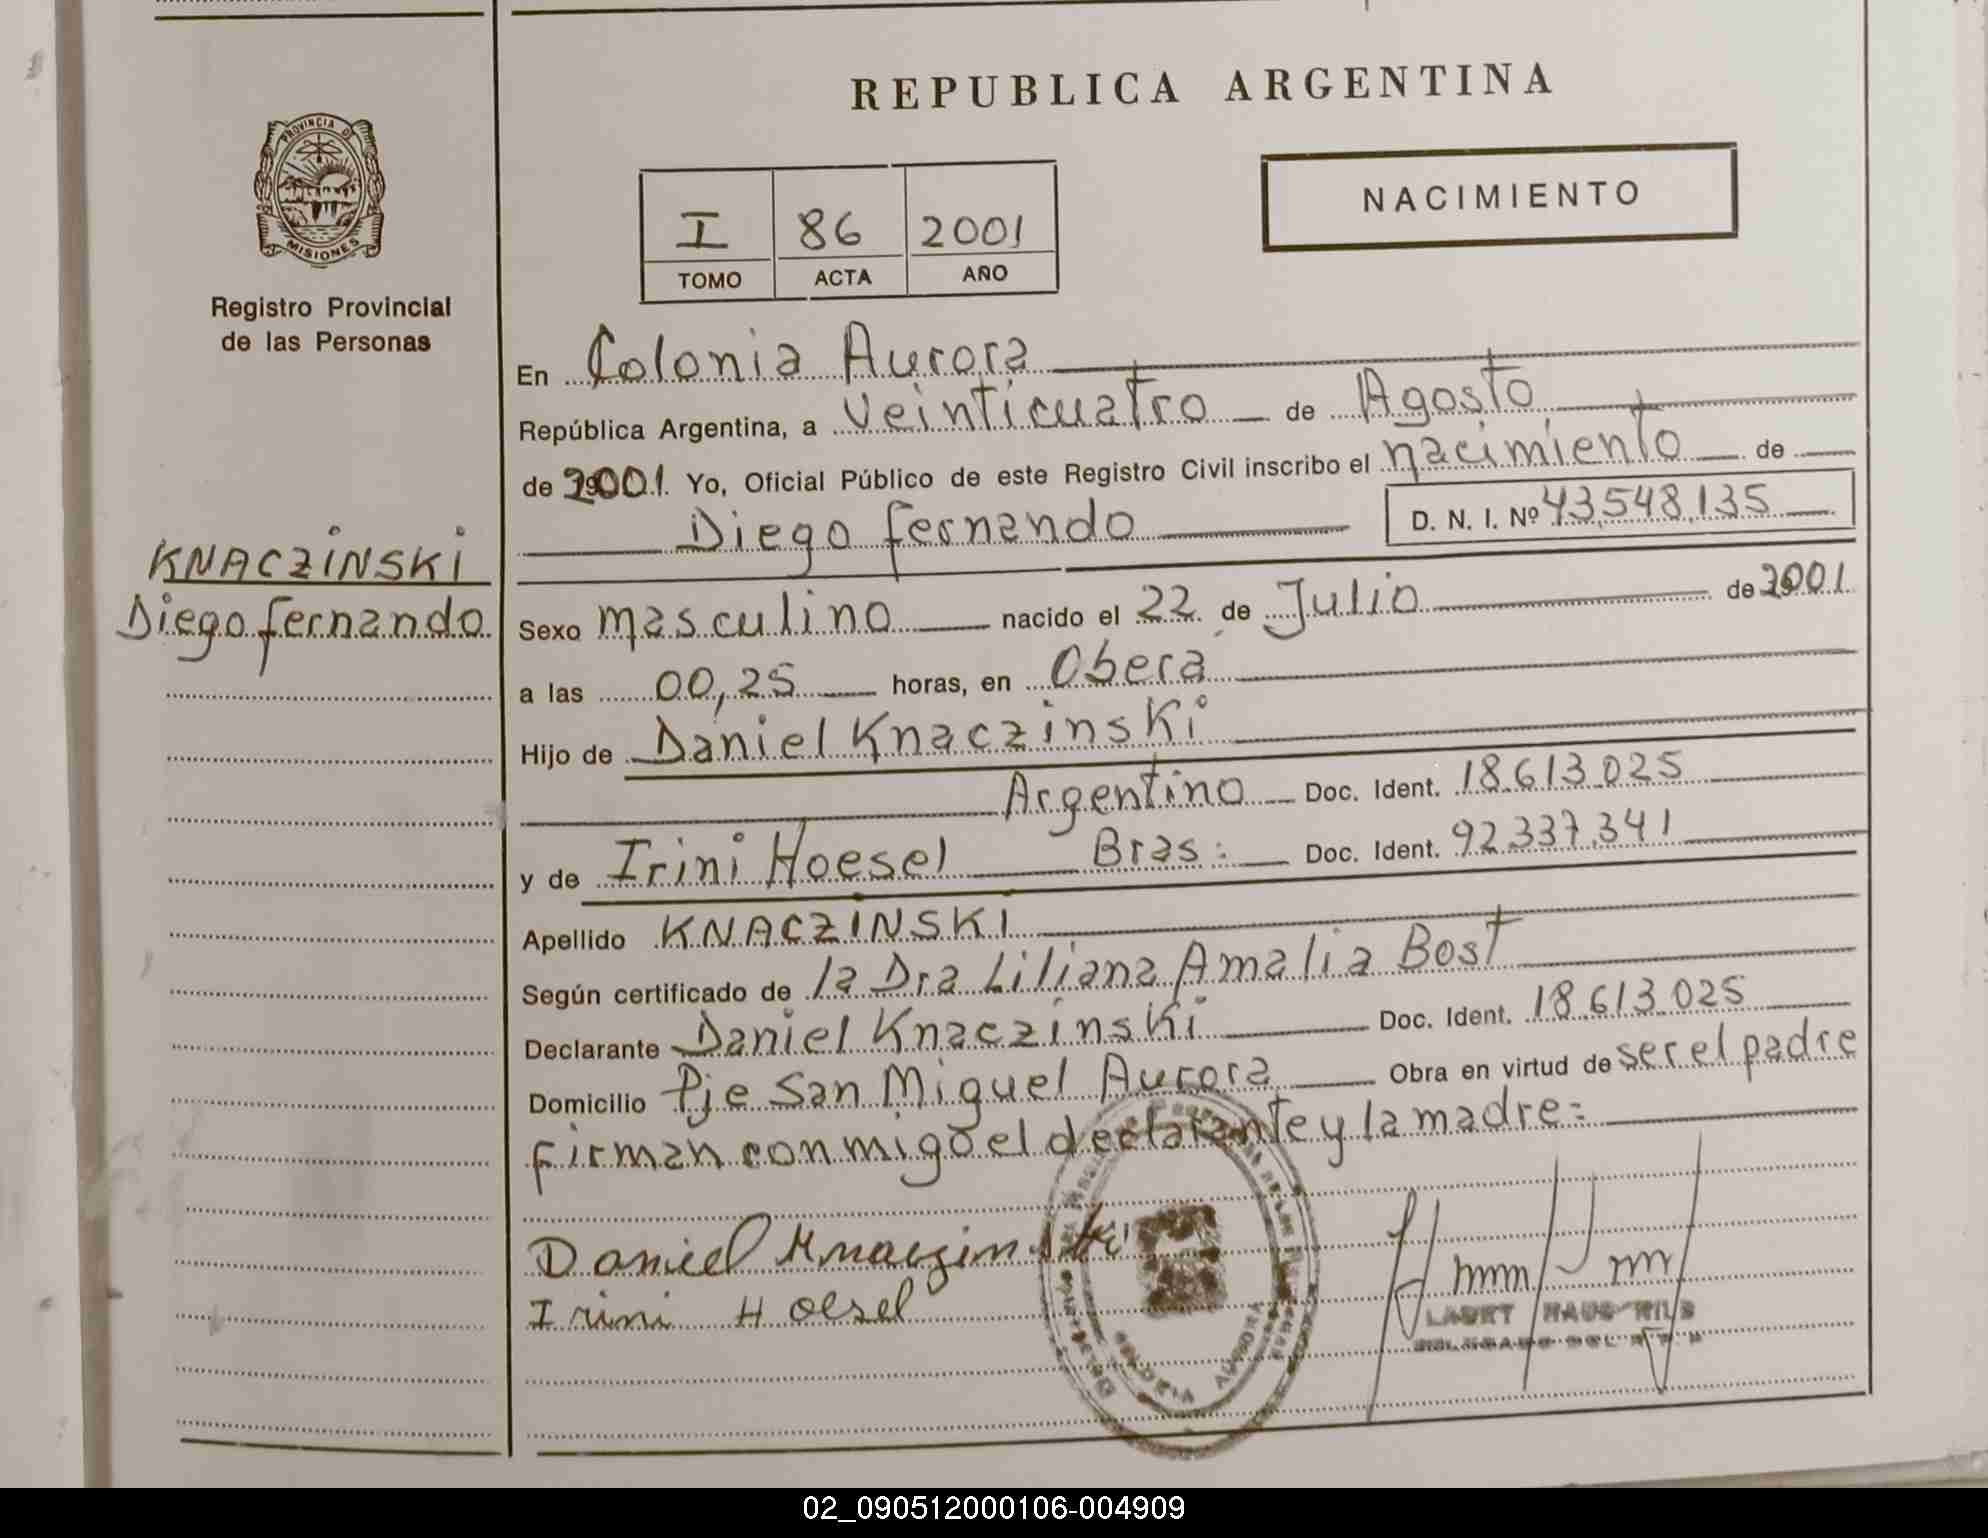 REPUBLICA ARGENTINA
PROVINCIA DE
MISIONES
Registro Provincial
de las Personas
NACIMIENTO
I 86 2001
TOMO ACTA AÑO
En Colonia Aurora
República Argentina, a veinticuatro de Agosto
de 2001. Yo, Oficial Público de este Registro Civil inscribo el nacimiento de
Diego fernando D. N. I. Nº 43,548,135
KNACZINSKI
Diego fernando
Sexo masculino nacido el 22 de Julio de 2001
a las 00,25 horas, en Oberá
Hijo de Daniel Knaczinski
Argentino Doc. Ident. 18.613.025
y de Irini Hoesel Bras: Doc. Ident. 92.337.341
Apellido KNACZINSKI
Según certificado de la Dra Liliana Amalia Bost
Declarante Daniel Knaczinski Doc. Ident. 18.613.025
Domicilio Pje San Miguel Aurora Obra en virtud de ser el padre
firman conmigo el declarante y la madre=
Daniel Knaczinski
Irini Hoesel
COLONIA AURORA
02_090512000106-004909